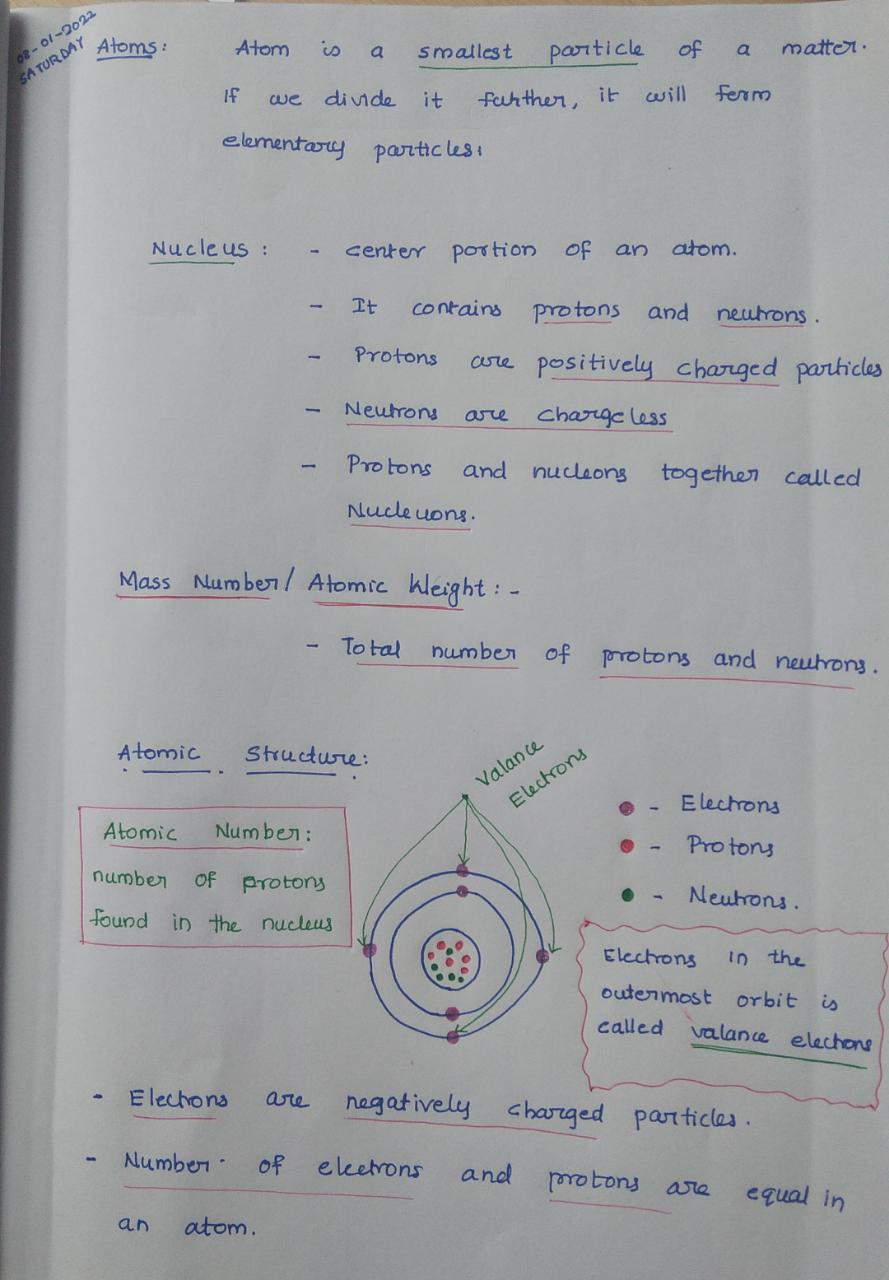 08-01-2022
SATURDAY
Atoms: Atom is a smallest particle of a matter.
If we divide it further, it will form
elementary particles.
Nucleus: - center portion of an atom.
- It contains protons and neutrons.
- Protons are positively charged particles
- Neutrons are chargeless
- Protons and nucleons together called
Nucleuons.
Mass Number/ Atomic Weight: -
- Total number of protons and neutrons.
Atomic Structure:
Valance
Electrons
Atomic Number:
number of protons
found in the nucleus
- Electrons
- Protons
- Neutrons.
Electrons in the
outermost orbit is
called valance electrons
- Electrons are negatively charged particles.
- Number of electrons and protons are equal in
an atom.